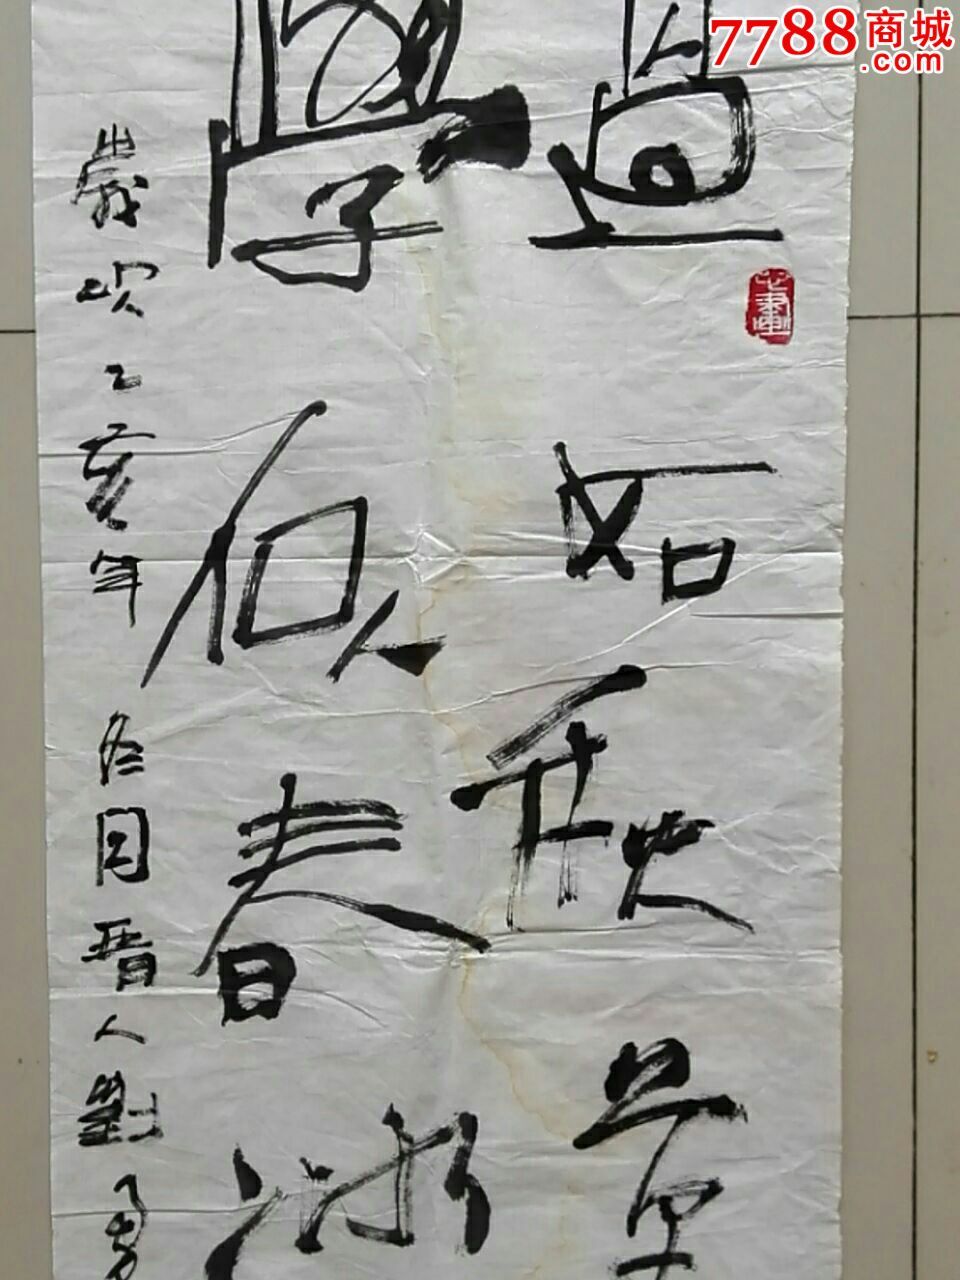 7788商城
.com
過如秋草
學似春冰
歲次乙亥年冬月晋人劉勇